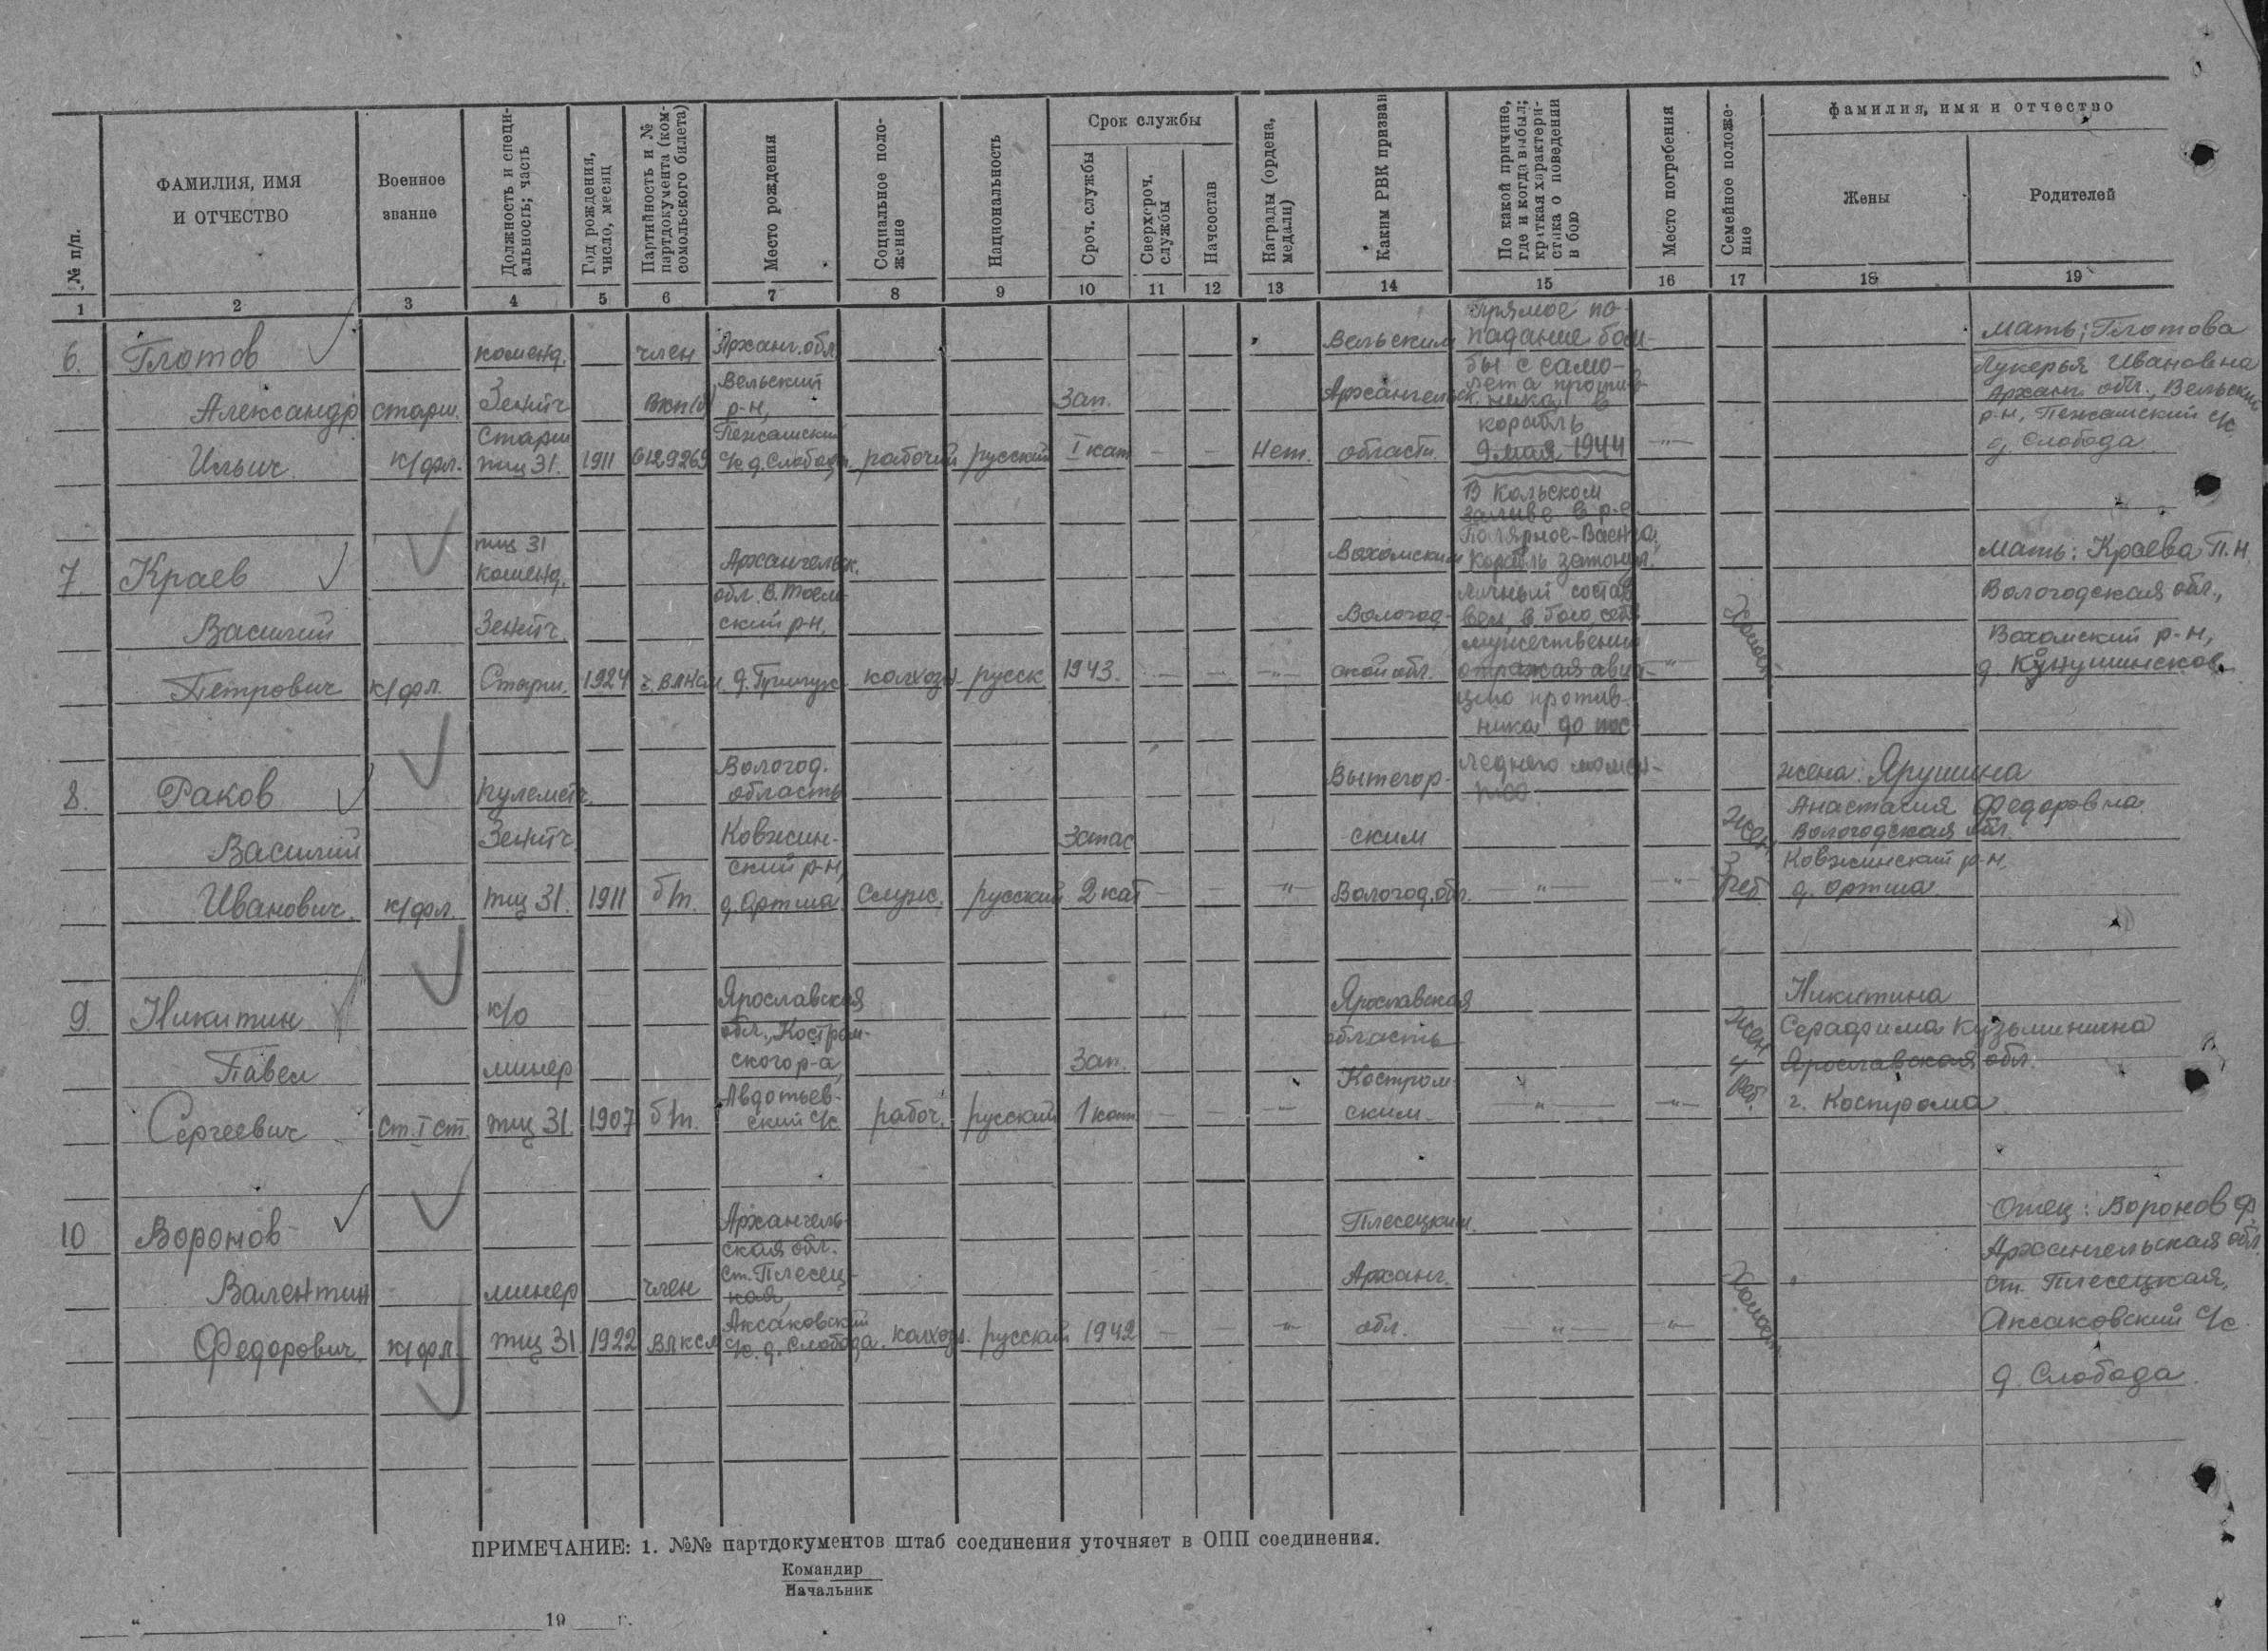 № п/п.
ФАМИЛИЯ, ИМЯ
И ОТЧЕСТВО
Военное
звание
Должность и специ-
альность; часть
Год рождения,
число, месяц
Партийность и №
партдокумента (ком-
сомольского билета)
Место рождения
Социальное поло-
жение
Национальность
Срок службы
Сроч. службы
Сверхсроч.
службы
Начсостав
Награды (ордена,
медали)
Каким РВК призван
По какой причине,
где и когда выбыл;
краткая характери-
стика о поведении
в бою
Место погребения
Семейное положе-
ние
фамилия, имя и отчество
Жены
Родителей
1 2 3 4 5 6 7 8 9 10 11 12 13 14 15 16 17 18 19
6. Глотов
Александр
Ильич
старш.
к/фл.
коменд.
Зенитч
Старш
тщ 31.
1911
член
ВКП/б/
6129269
Арханг. обл
Вельский
р-н,
Пежемский
с/с д. Слобода
рабочий
русский
Зап.
I кат
—
—
Нет.
Вельским
Архангельск.
области.
Прямое по-
падание бом-
бы с само-
лета против-
ника в
корабль
9 мая 1944
В Кольском
заливе в р-е
Полярное-Ваенга,
Корабль затонул.
Личный состав
вел в бою себя
мужественно
отражая авиа-
цию против-
ника до пос-
леднего момен-
та.
—"—
мать: Глотова
Лукерья Ивановна
Арханг. обл., Вельский
р-н, Пежемский с/с
д. Слобода
7. Краев
Василий
Петрович
к/фл.
тщ 31
коменд.
Зенитч.
Старш.
1924
ч. ВЛКСМ
Архангельск.
обл. В. Тоем-
ский р-н,
колхозн.
русск
1943.
—
—
—"—
Вохомским
Вологод-
ской обл.
—"—
Холост
мать: Краева П.Н
Вологодская обл.,
Вохомский р-н,
8. Раков
Василий
Иванович.
к/фл.
пулеметч.
Зенитч.
тщ 31.
1911
б/п.
Вологод.
область
Ковжин-
ский р-н,
д. Ортша
Служ.
русский
Запас
2 кат
—
—
—"—
Вытегор-
ским
Вологод. обл.
—"—
—"—
Жен.
3
реб.
жена: Ярушина
Анастасия Федоровна
Вологодская обл.
Ковжинский р-н,
д. Ортша.
9. Никитин
Павел
Сергеевич
Ст. I ст.
к/о
минер
тщ 31.
1907
б/п.
Ярославская
обл., Костром-
ского р-а,
Авдотьев-
ский с/с
рабоч.
русский
Зап.
1 кат
—
—
—"—
Ярославская
область
Костром-
ским
—"—
—"—
Жен
4
реб.
Никитина
Серафима Кузьминична
Ярославская обл.
г. Кострома
10 Воронов
Валентин
Федорович.
к/фл.
минер
тщ 31
1922
член
ВЛКСМ
Архангель-
ская обл.
ст. Плесец-
кая,
Аксаковский
с/с. д. Слобода.
колхозн.
русский
1942
—
—
—"—
Плесецким
Арханг.
обл.
—"—
—"—
Холост.
Отец: Воронов Ф.
Архангельская обл
ст. Плесецкая,
Аксаковский с/с.
д. Слобода.
ПРИМЕЧАНИЕ: 1. №№ партдокументов штаб соединения уточняет в ОПП соединения.
Командир
Начальник
„ 19 г.